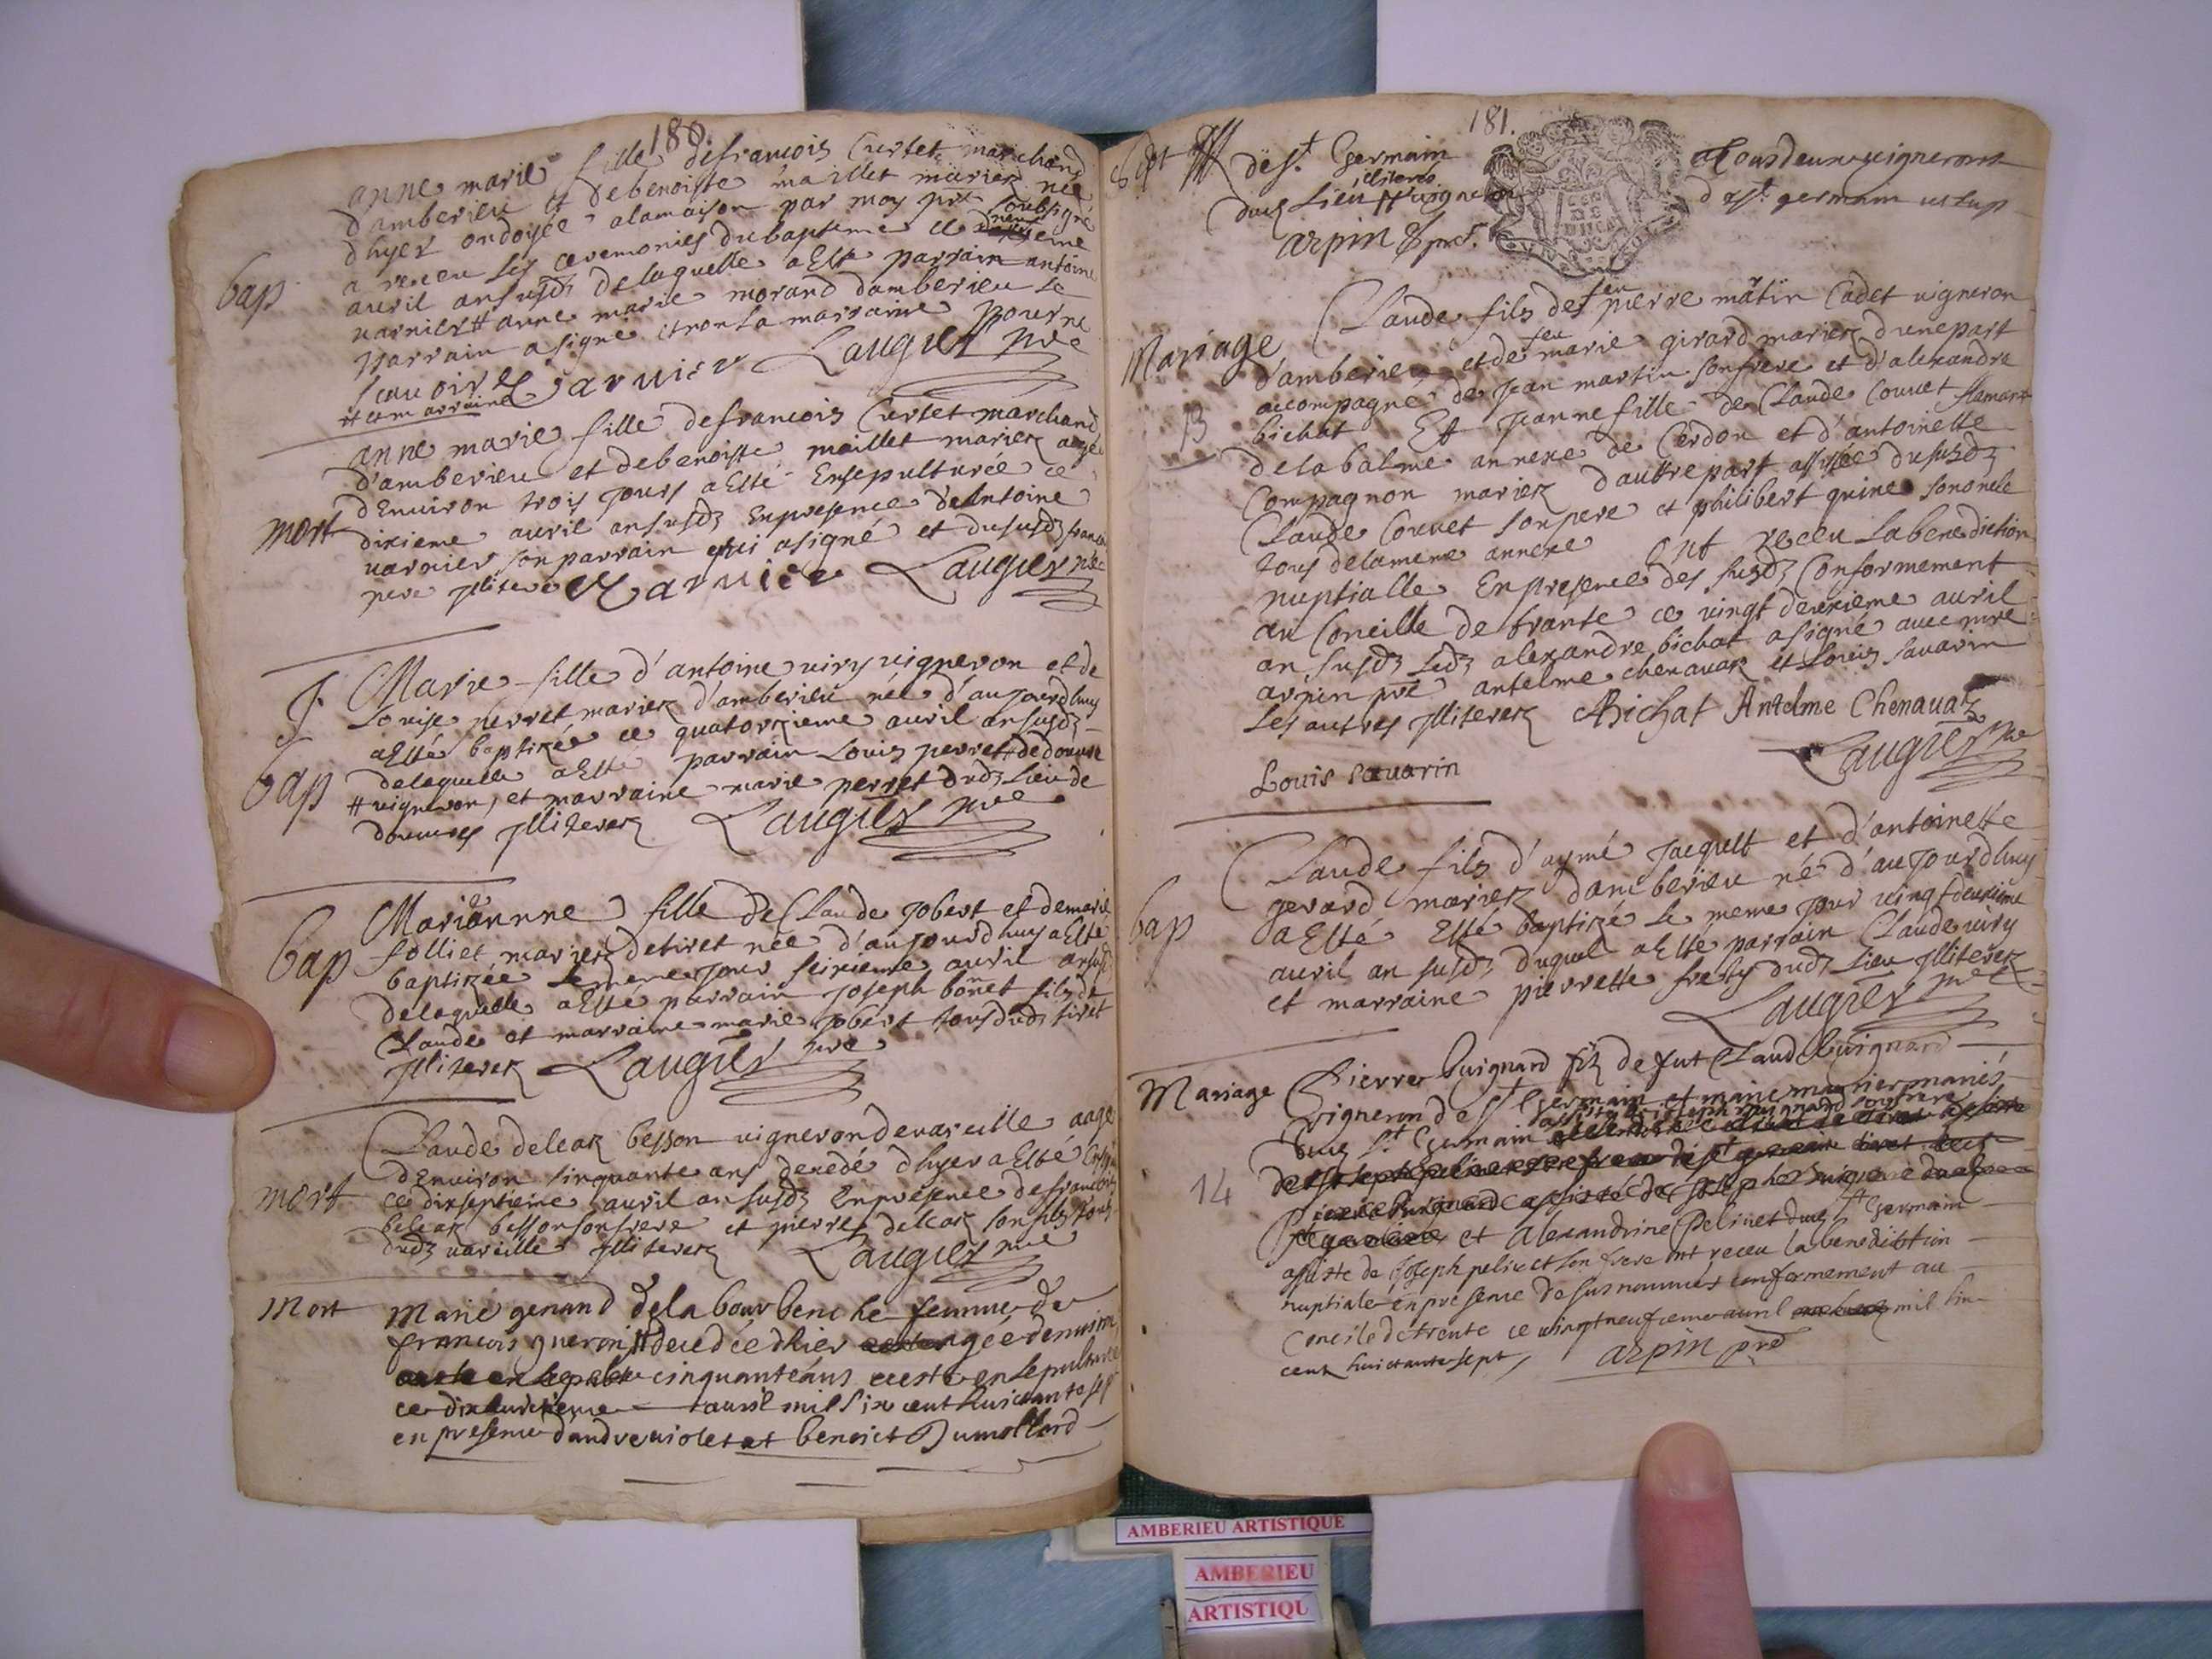 180.
anne marie fille de francois Curtet marchand
d'amberieu et de benoiste maillet mariez née
d'hyer ondoyée a la maison par moy pre soubsigné
a receu les ceremonies du baptême le neuvieme
bap
avril an susdz de laquelle a Esté parrain antoine
varnier # anne marie morand d'amberieu le
parrain a signé et non la marraine pour ne
scavoir Varnier Laugier pre
# et commarraine
anne marie fille de francois Curtet marchand
d'amberieu et de benoiste maillet mariez agé
d'Environ trois jours a Esté Ensepulturée ce
mort
dixieme avril an susdz En presence d'Antoine
varnier son parrain qui a signé et du susdz francois
pere illiteré Varnier Laugier pre
Marie fille d'antoine viry vigneron et de
Louise perret mariez d'amberieu née d'aujourdhuy
a Esté baptizée ce quatorzieme avril an susdz
bap
de laquelle a Esté parrain Louis perret # de douvre
# vigneron, et marraine marie perret dudz Lieu de
douvres illiterez Laugier pre
Marianne fille de Claude Jobert et de marie
bap
folliet mariez de tiret née d'aujourdhuy a Esté
baptizée le meme jour seizieme avril an susdz
de laquelle a Esté parrain Joseph bonet fils de
Claude et marraine marie Jobert tous dudz tiret
illiterez Laugier pre
Claude beleaz besson vigneron de vareille aagé
d'Environ sinquante ans decedé d'hyer a Esté
mort
ce dixseptieme avril an susdz En presence de francois
beleaz besson son frere et pierre beleaz son fils tous
dudz vareille illiterez Laugier pre
Mort
Marie genand de la bourbenche femme de
francois gueron # decedée d'hier agée d'environ
cinquante ans a esté ensepulturée
ce dixhuictieme avril mil six cent huictante sept
en presence d'andre violet et benoict Dumollard
181.
de st. Germain
illiteré
dud Lieu # vigneron
arpin pre.
Tous deux vignerons
de st. germain ut sup
Claude fils de feu pierre martin Cadet vigneron
Mariage
d'amberieu et de feu marie girard mariez d'une part
accompagné de Jean martin son frere et d'alexandre
13
bichat Et Jeanne fille de Claude Couvet flamant
de la balme annexe de Cerdon et d'antoinette
Compagnon mariez d'autre part assistée du susdz
Claude Couvet son pere et philibert quine son oncle
tous de la meme annexe ont receu La benediction
nuptialle En presence des susdz Conformement
au Concille de trante ce vingt deuxieme avril
an susdz Ledz alexandre bichat a signé avec mre
arpin pre antelme chenavaz et Louis savarin
Les autres illiterez ABichat Antelme Chenavaz
Laugier pre
Louis savarin
Claude fils d'aymé Jaquet et d'antoinette
gerard mariez d'amberieu né d'aujourdhuy
bap
a Esté Esté baptizé le meme jour vingtdeuxieme
avril an susdz duquel a Esté parrain Claude viry
et marraine pierrette frety dudz Lieu illiterez
Laugier pre
Mariage
Pierre buignard filz de fut Claude buignard
vigneron de st Germain et marie marier mariés
assisté de joseph buignard son frere
dud st Germain
14
et Alexandrine Pelinet dud st Germain
assistée de Joseph pelinet son frere ont receu la benediction
nuptiale en presence de susnommés conformement au
Concile de trente ce vingtneufieme avril mil six
cent huictante sept, arpin pre
AMBERIEU ARTISTIQUE
AMBERIEU
ARTISTIQU